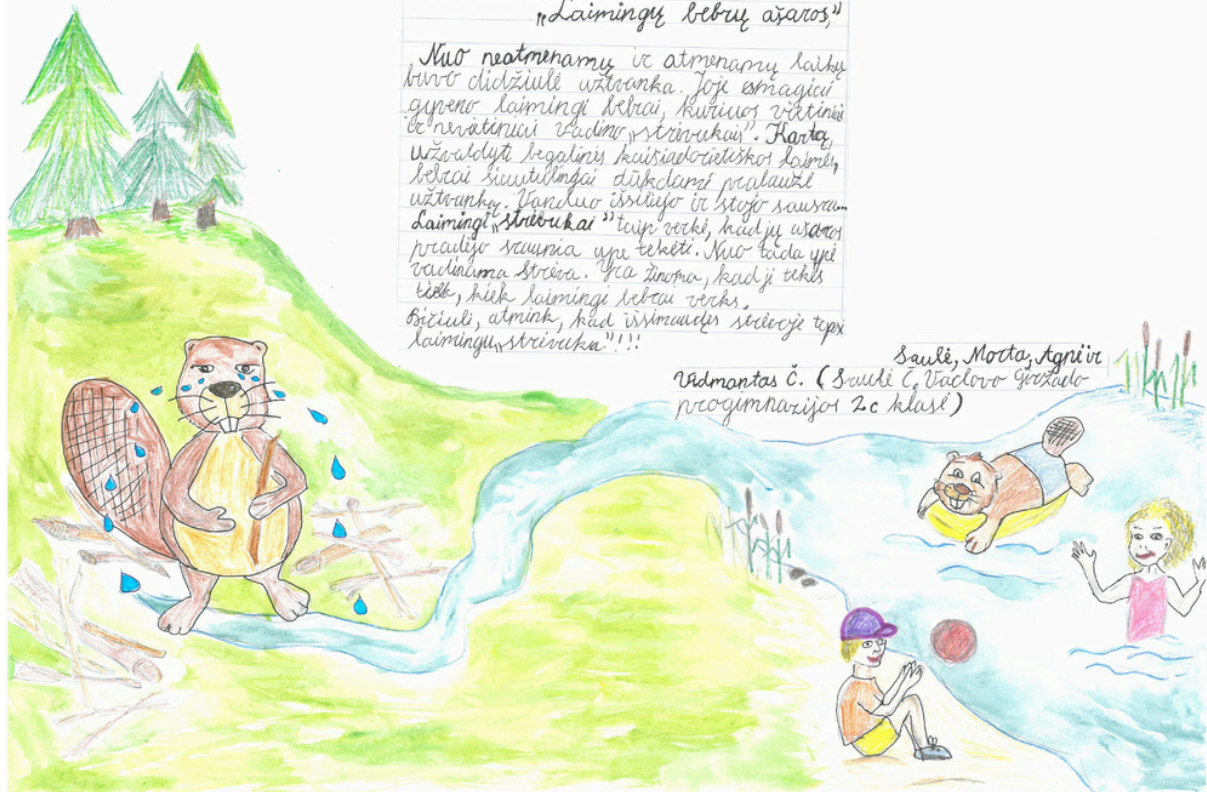 „Laimingų bebrų ašaros„"
Nuo neatmenamų ir atmenamų laikų
buvo didžiulė užtvanka. Joje smagiai
gyveno laimingi bebrai, kuriuos vietiniai
ir nevietiniai vadino „strėvukais". Kartą,
užvaldyti begalinės kaišiadorietiškos laimės,
bebrai šiautulingai dūkdami pralaužė
užtvanką. Vanduo išsiliejo ir stojo sausra...
Laimingi „strėvukai" taip verkė, kad jų ašaros
pradėjo sraunia upe tekėti. Nuo tada upė
vadinama Strėva. Yra žinoma, kad ji tekės
tiek, kiek laimingi bebrai verks.
Bičiuli, atmink, kad išsimaudęs strėvoje tapsi
laimingu „strėvuku"!!!
Saulė, Morta, Agnė ir
Vidmantas Č. (Saulė Č. Vaclovo Giržado
progimnazijos 2c klasė)